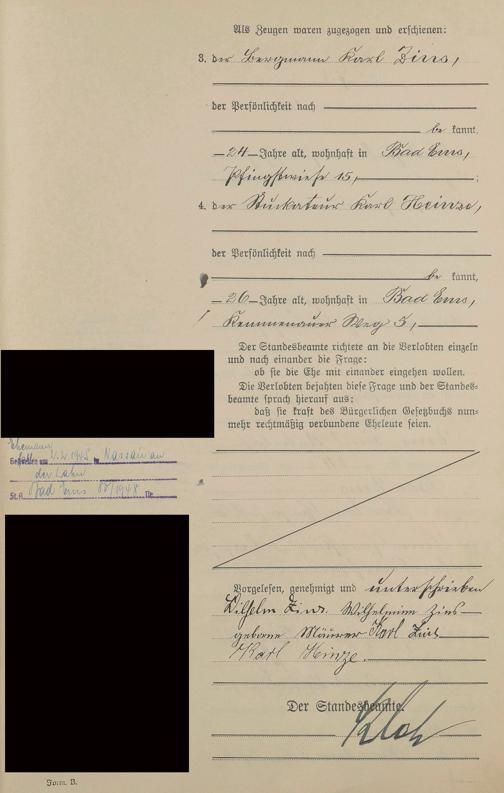 Als Zeugen waren zugezogen und erschienen:
3. der Bergmann Karl Zins,
der Persönlichkeit nach
be kannt,
24 Jahre alt, wohnhaft in Bad Ems,
Pfingstwiese 15,
4. der Stuckateur Karl Heinze,
der Persönlichkeit nach
be kannt,
26 Jahre alt, wohnhaft in Bad Ems,
Kemmenauer Weg 5,
Der Standesbeamte richtete an die Verlobten einzeln
und nach einander die Frage:
ob sie die Ehe mit einander eingehen wollen.
Die Verlobten bejahten diese Frage und der Standes=
beamte sprach hierauf aus:
daß sie kraft des Bürgerlichen Gesetzbuchs nun=
mehr rechtmäßig verbundene Eheleute seien.
Ehemann
Gestorben am 2.2.1945 in Nassau an
der Lahn
St. A. Bad Ems /1948 Nr.
Vorgelesen, genehmigt und unterschrieben
Wilhelm Zins. Wilhelmine Zins
geborne Mäurer Karl Zins
Karl Heinze.
Der Standesbeamte.
Form. B.